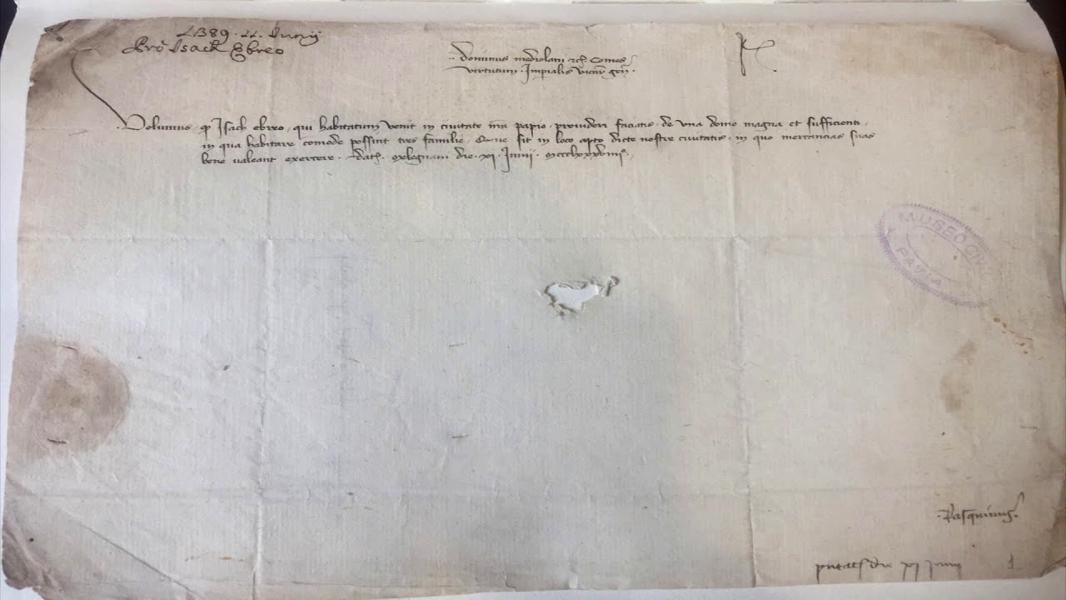 1389. 11. Junij
Pro Isach Ebreo
Dominus mediolani etc Comes
virtutum Imperialis vicarius
Volumus q Isach ebreo, qui habitatum venit in civitate nra papie, provideri faciatis de una domo magna et sufficienti,
in qua habitare comode possint tres familie. Que sit in loco apto dicte nostre civitatis, in quo mercancias suas
bene valeant exercere. Dat. Melegnani die xi Junij
Pasquinus
MUSEO
PAVIA
die xi Junij
1